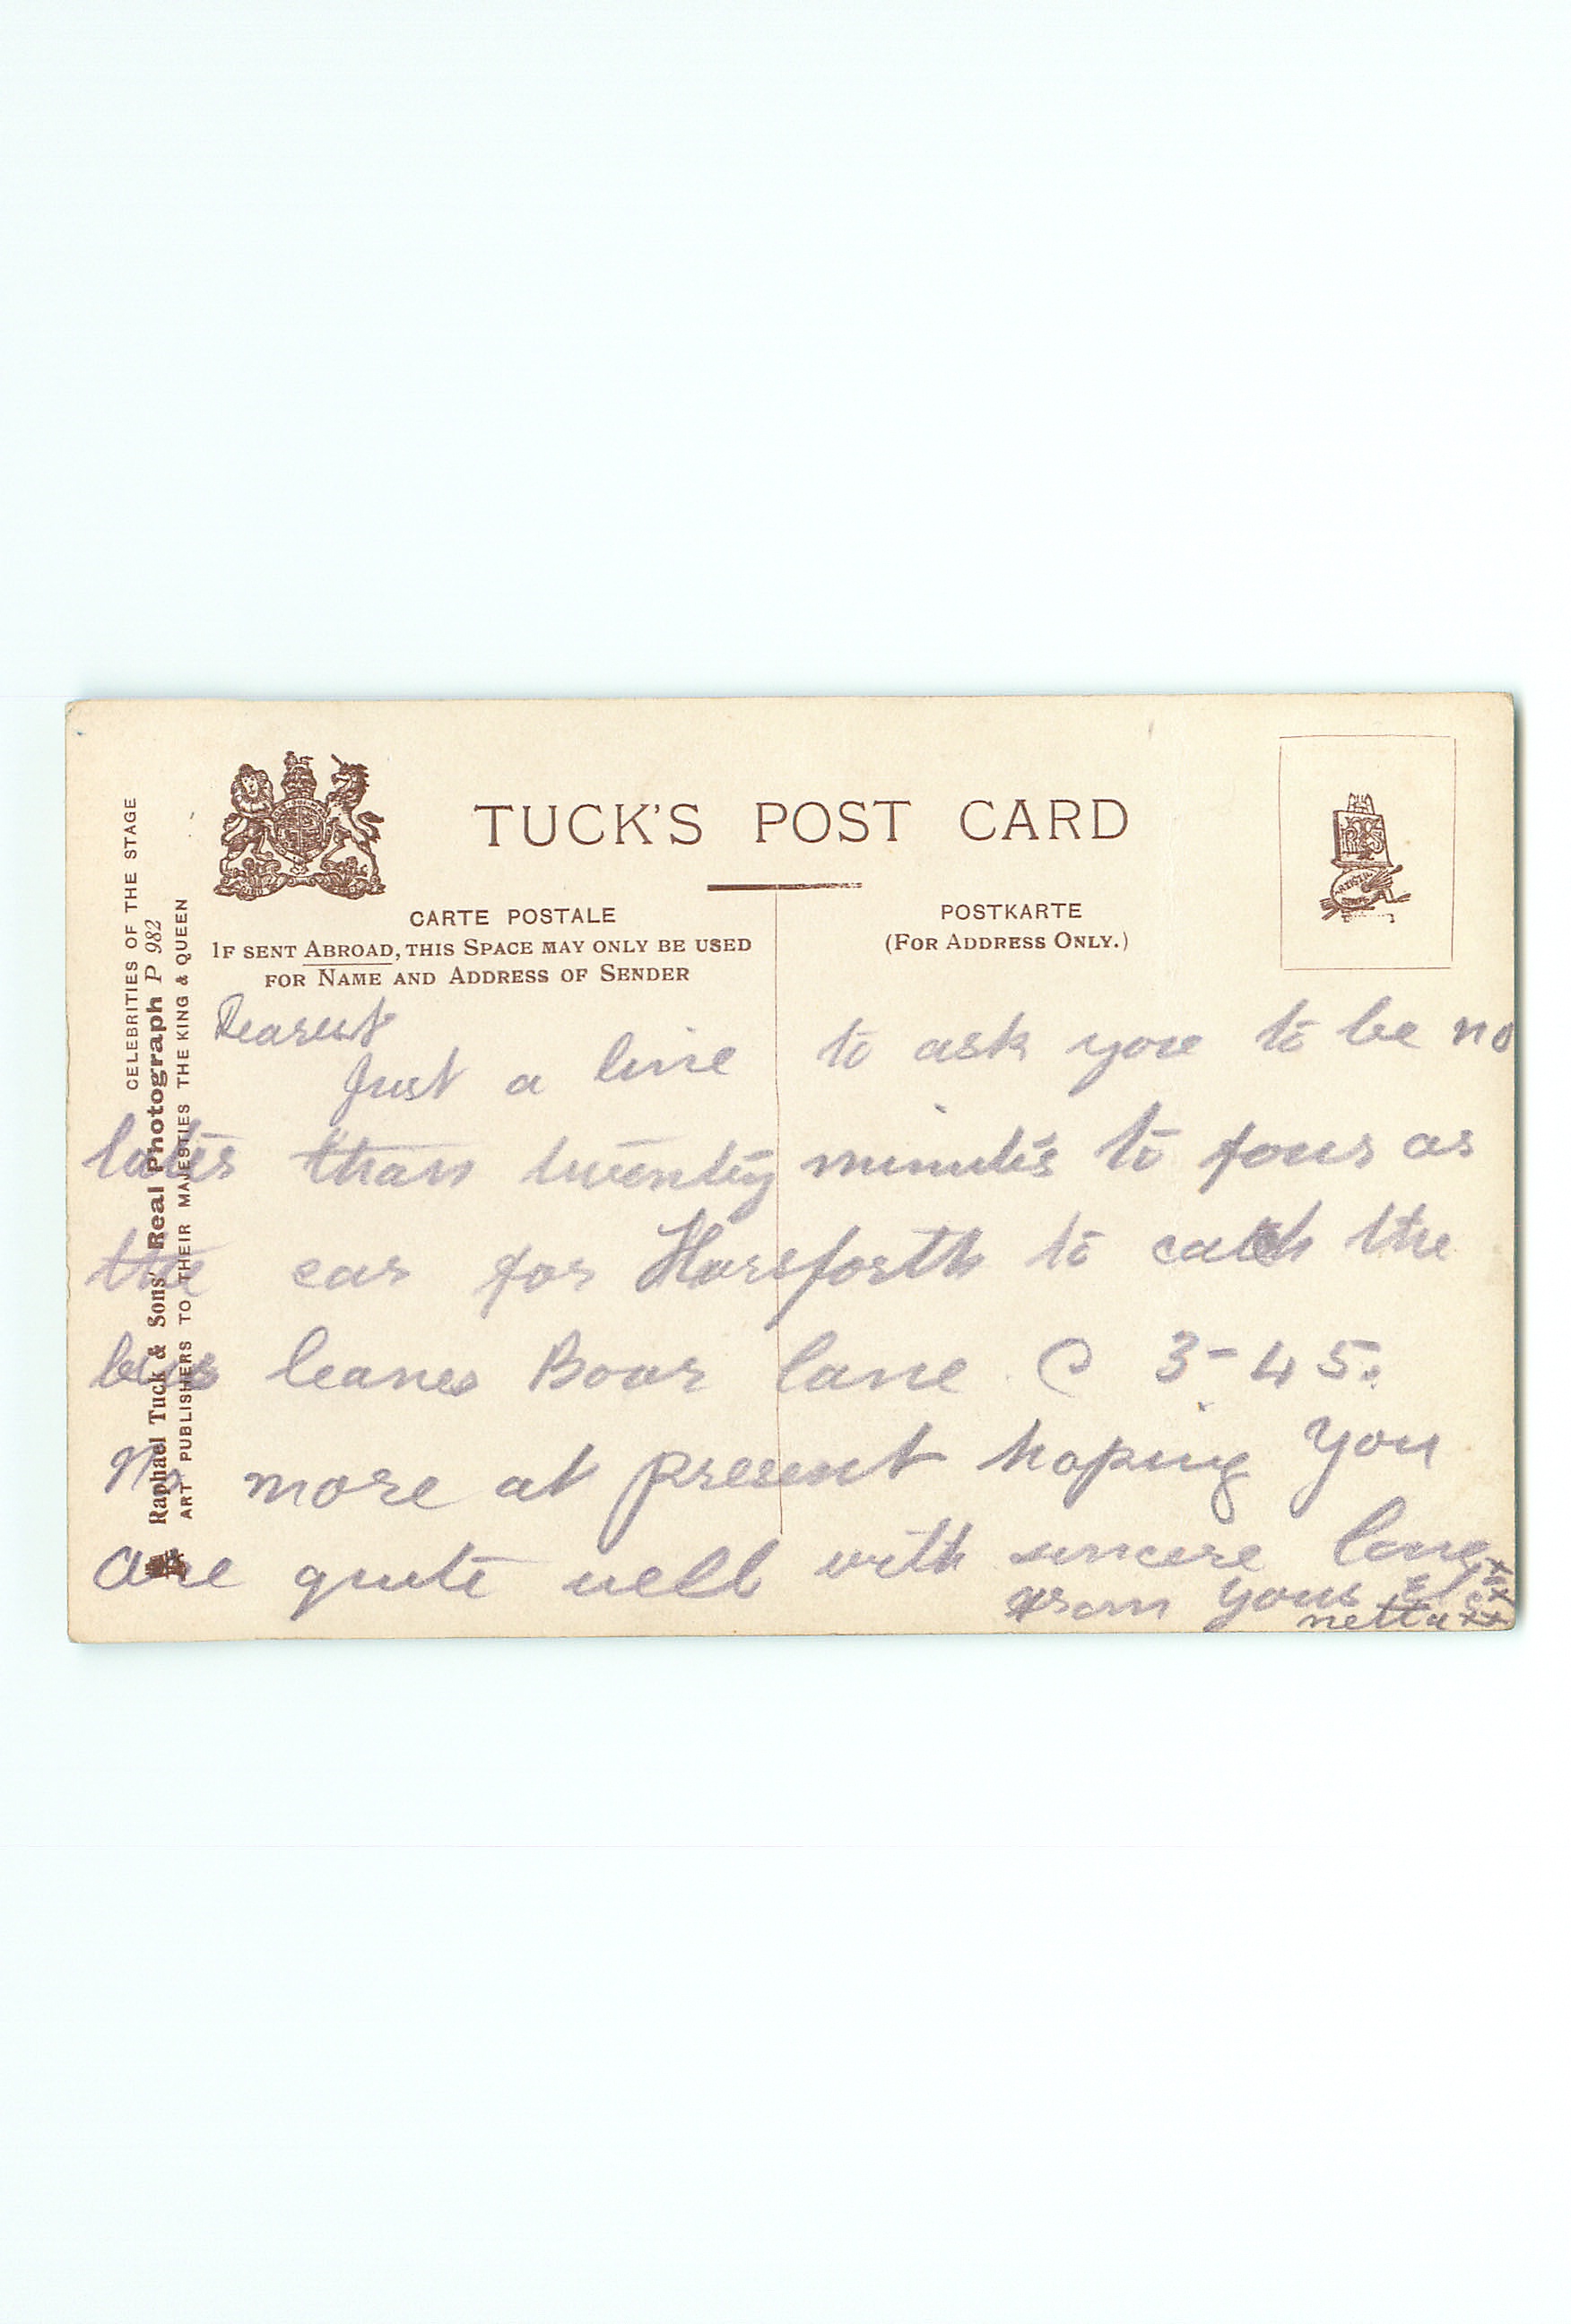 TUCK'S POST CARD
CARTE POSTALE
IF SENT ABROAD, THIS SPACE MAY ONLY BE USED
FOR NAME AND ADDRESS OF SENDER
POSTKARTE
(FOR ADDRESS ONLY.)
CELEBRITIES OF THE STAGE
Raphael Tuck & Sons' Real Photograph P 982
ART PUBLISHERS TO THEIR MAJESTIES THE KING & QUEEN
Dearest
Just a line to ask you to be no
later than twenty minutes to four as
the car for Horsforth to catch the
bus leaves Boar lane 3-45.
No more at present hoping you
are quite well with sincere love
from yours
netta xx